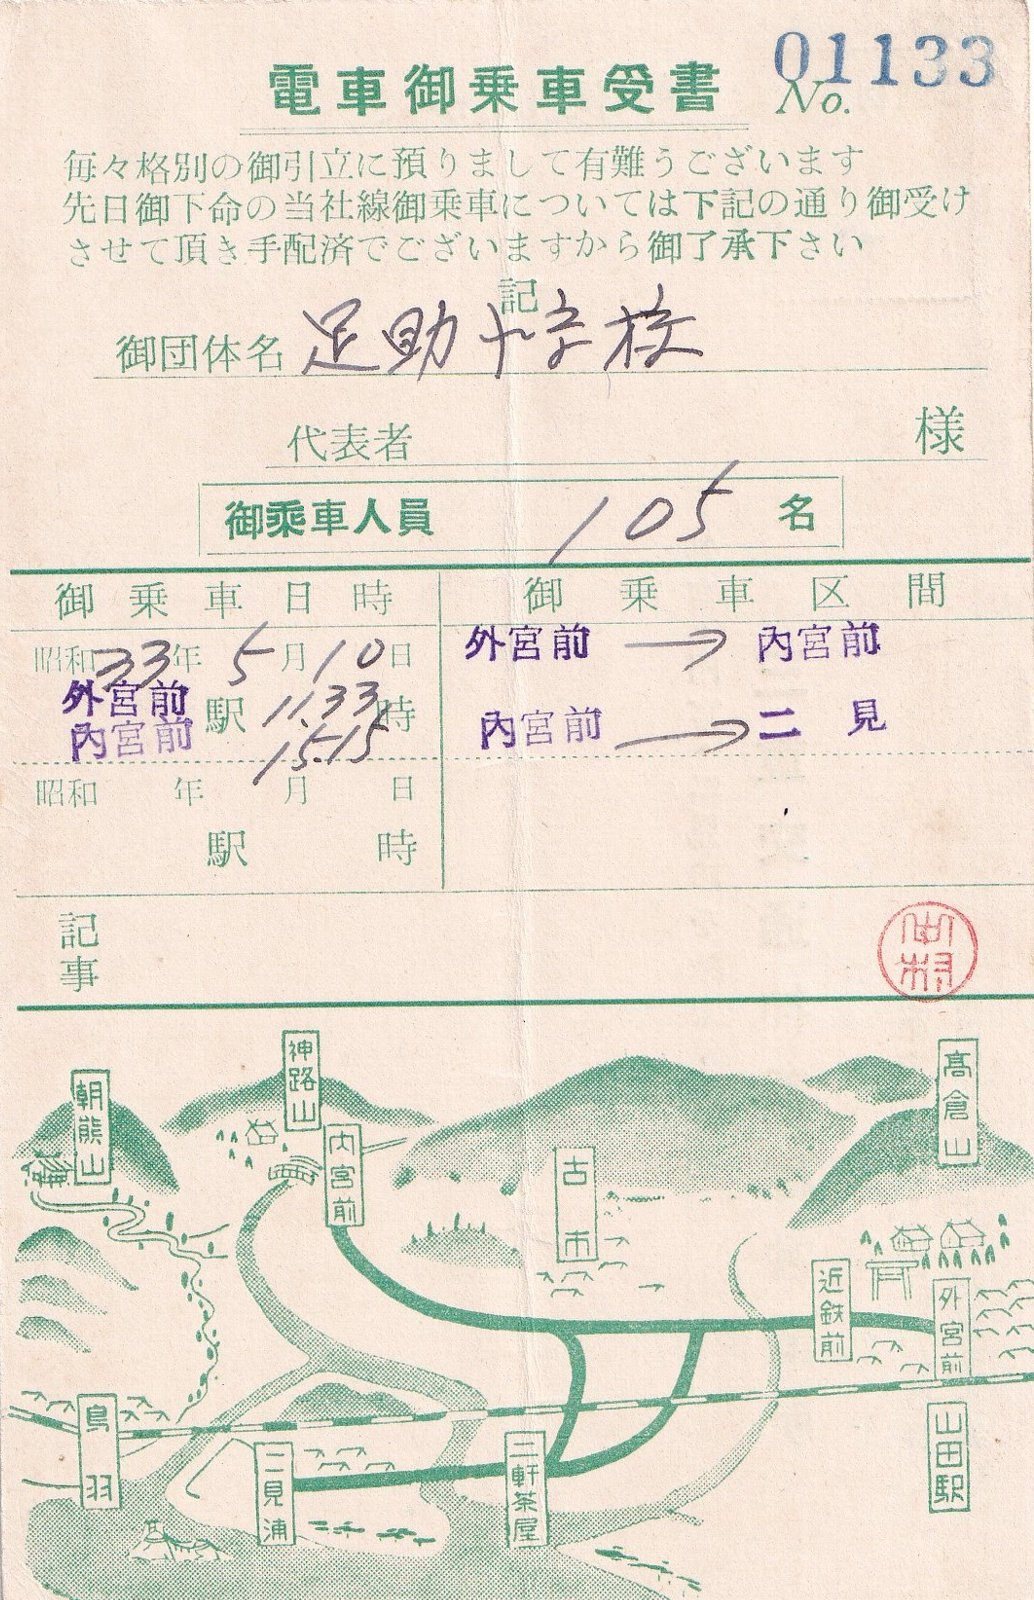 電車御乗車受書
No. 01133
毎々格別の御引立に預りまして有難うございます
先日御下命の当社線御乗車については下記の通り御受け
させて頂き手配済でございますから御了承下さい
記
御団体名 足助小学校
代表者 様
御乗車人員 105 名
御乗車日時 御乗車区間
昭和33年5月10日 外宮前 → 内宮前
外宮前 駅 11.33 時
内宮前 15.15 内宮前 → 二見
昭和 年 月 日
駅 時
記事
神路山
高倉山
朝熊山
内宮前
古市
近鉄前
外宮前
鳥羽
山田駅
二見浦
二軒茶屋